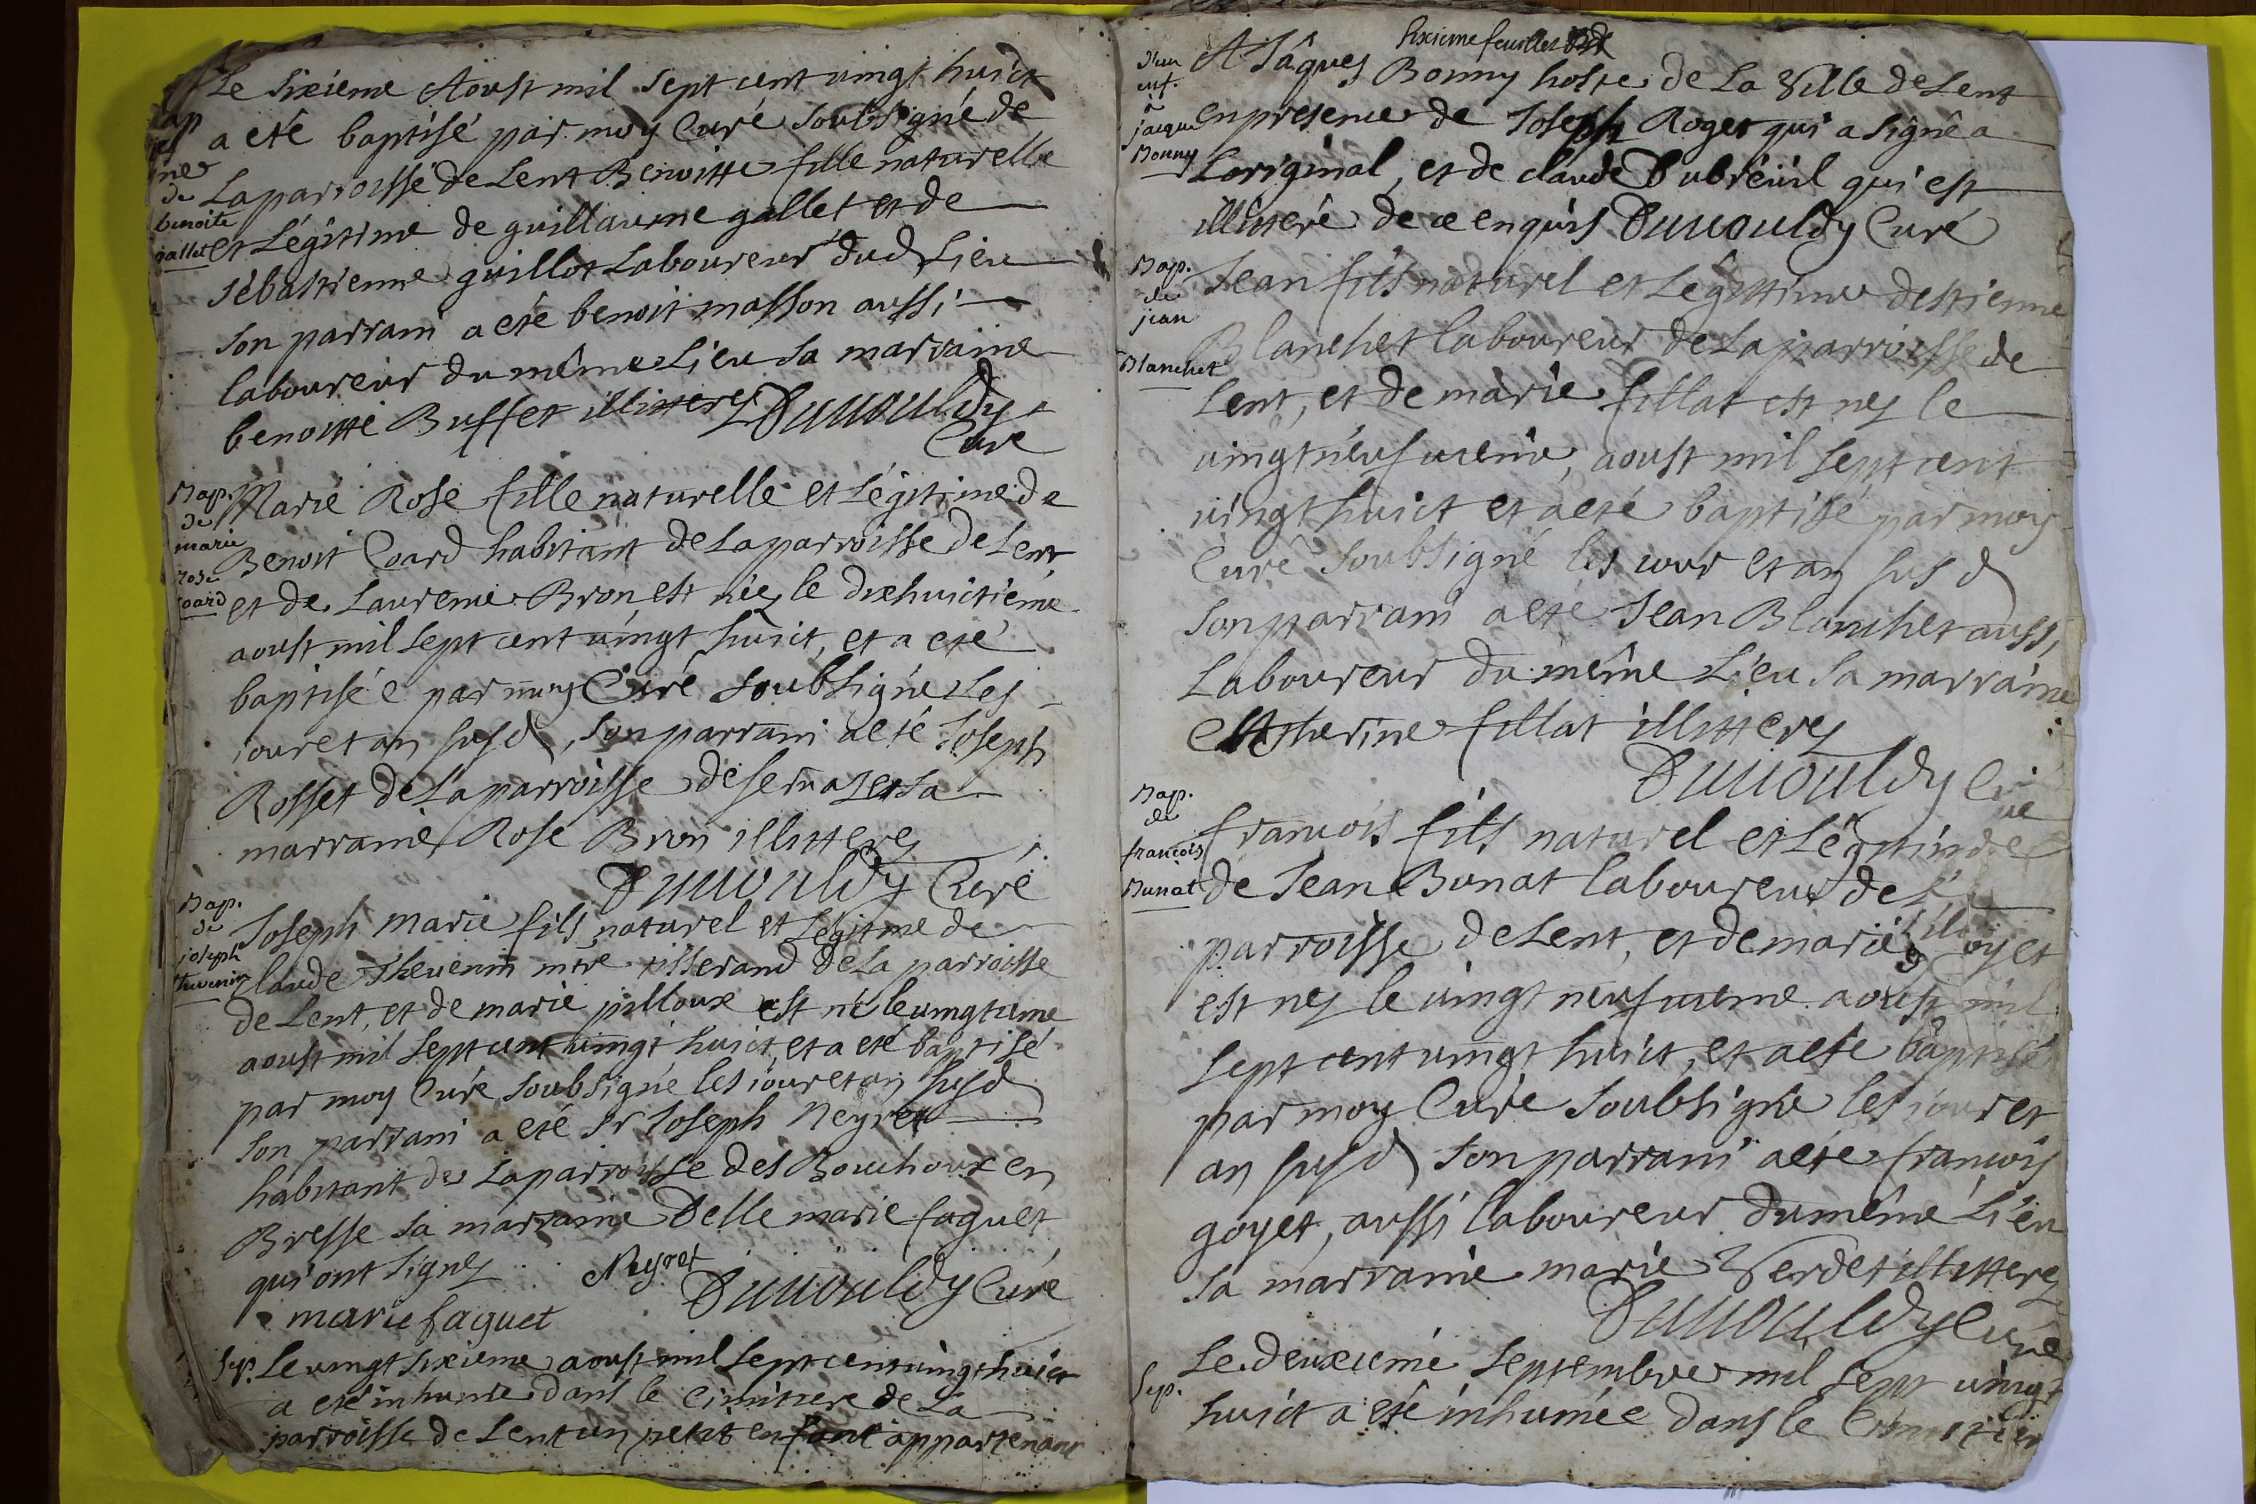 Le sixieme Aoust mil sept cent vingt huict
a eté baptisé par moy Curé soubsigné de
La parroisse de Lent Benoitte fille naturelle
et Légitime de guillaume gallet et de
sébastienne guillot Laboureur dud Lieu
son parrain a eté benoit masson aussi
laboureur du même Lieu sa marraine
benoitte Buffet illitterez Duvouldy
Curé
de
benoite
gallet
Bap.
de
marie
rose
coard
Marie Rose fille naturelle et Légitime de
Benoit Coard habitant de La parroisse de Lent
et de Laurence Bron est née le dixhuictième
aoust mil sept cent vingt huict, et a eté
baptisée par moy Curé soubsigné les
jour et an susd, son parrain a eté Joseph
Rosset de La parroisse de servas et sa
marraine Rose Bron illitterez
Duvouldy Curé
Bap.
de
joseph
thevenin
Joseph marie fils naturel et Légitime de
claude Thevenin mtre tisserand de La parroisse
de Lent, et de marie pilloux est né le vingtième
aoust mil sept cent vingt huict, et a eté baptisé
par moy Curé soubsigné les jour et an susd
son parrain a eté Sr Joseph Neyret
habitant de La parroisse des Bouchoux en
Bresse sa marraine Delle marie faguet
qui ont signez Neyret
Duvouldy Curé
marie faguet
Sep. Le vingt sixieme aoust mil sept cent vingt huict
a eté inhumé dans le Cimittere de La
parroisse de Lent un petit enfant appartenant
Sixieme feuillet
D'un
enf.
à
jacque
Bonny
A Jâques Bonny hoste de La Ville de Lent
en presence de Joseph Roger qui a signé a
L'original, et de claude Dubreüil qui est
illitteré de ce enquis Duvouldy Curé
Bap.
de
jean
Blanchet
Jean fils naturel et Légittime destienne
Blanchet laboureur de La parroisse de
Lent, et de marie fillat est ney le
vingtneufvieme, aoust mil sept cent
vingt huict et a eté baptisé par moy
Curé soubsigné les jour et an susd
son parrain a eté Jean Blanchet aussi
Laboureur du même Lieu sa marraine
Catherine fillat illitterez
Duvouldy Curé
Bap.
de
francois
Bunat
francois fils naturel et Légitime
de Jean Bunat laboureur de
parroisse de Lent, et de marie goyet
est ney le vingt neufvieme aoust mil
sept cent vingt huict, et a eté baptisé
par moy Curé soubsigné les jour et
an susd son parrain a eté francois
goyet, aussi laboureur du même Lieu
sa marraine marie Verdet illitterez
Duvouldy Curé
Sep.
Le deuxieme septembre mil sept vingt
huict a eté inhumée dans le